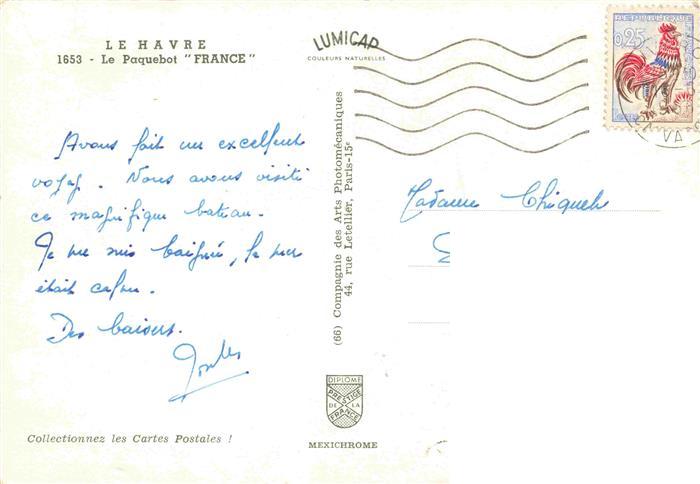 LE HAVRE
1653 - Le Paquebot "FRANCE"
LUMICAP
COULEURS NATURELLES
REPUBLIQUE
0,25
Avons fait un excellent
voyage. Nous avons visité
ce magnifique bateau.
Je me suis baigné, la mer
était calme.
Des baisers.
(66) Compagnie des Arts Photomécaniques
44, rue Letellier, Paris-15e
Madame
DIPLOME
PRESTIGE
DE LA
FRANCE
MEXICHROME
Collectionnez les Cartes Postales !